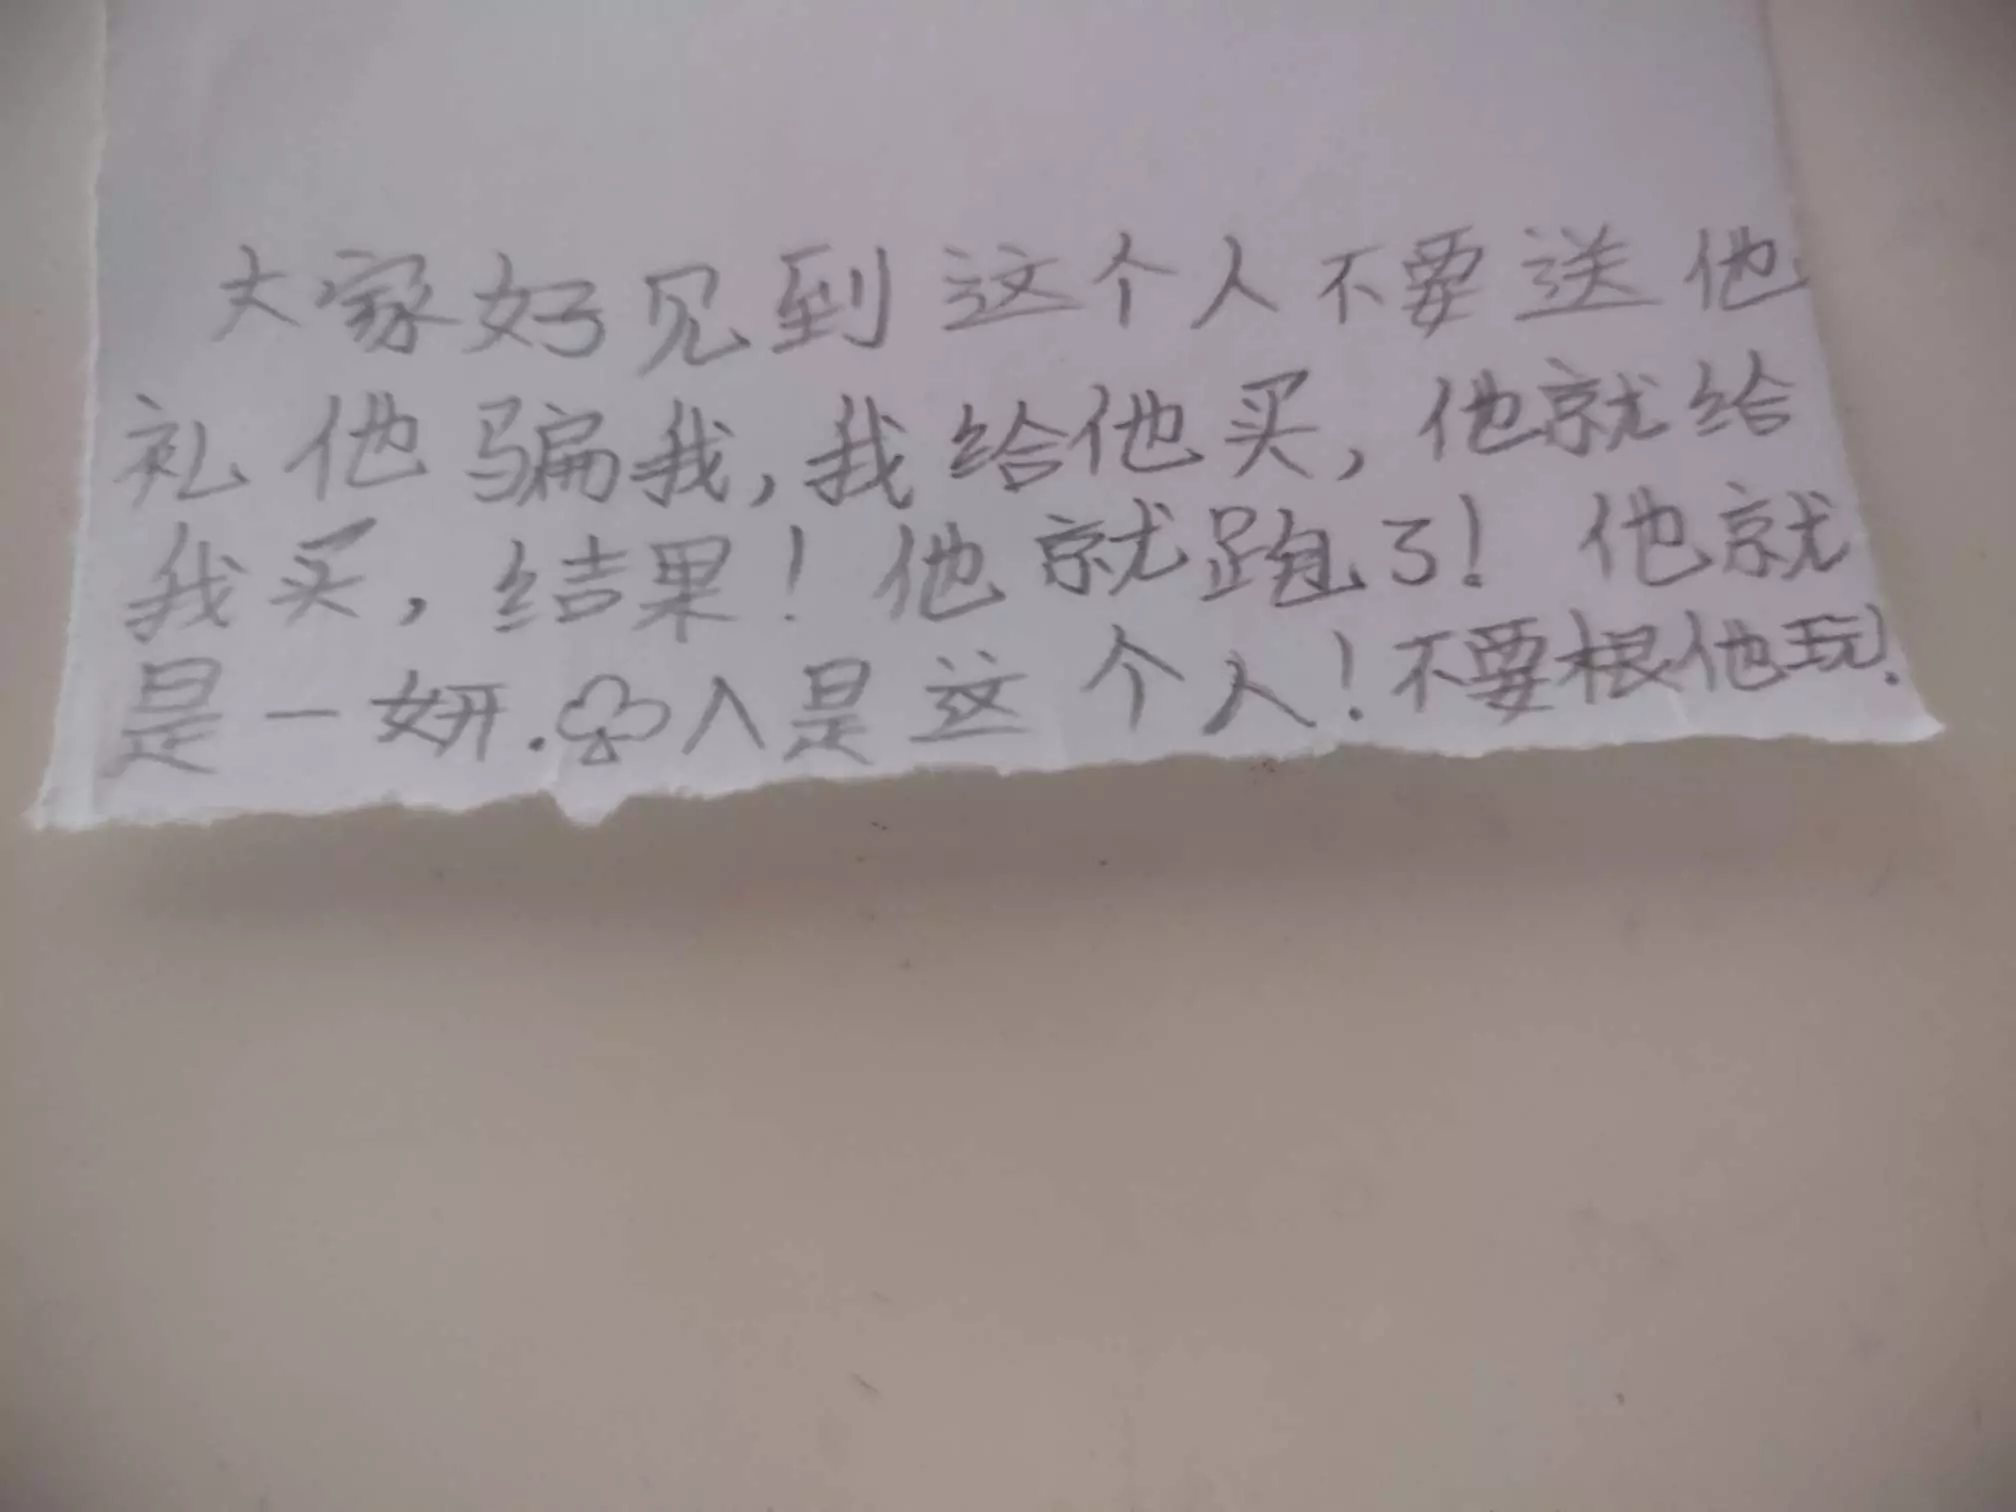 大家好见到这个人不要送他
礼他骗我,我给他买,他就给
我买,结果!他就跑了!他就
是一妍.入是这个人!不要根他玩!